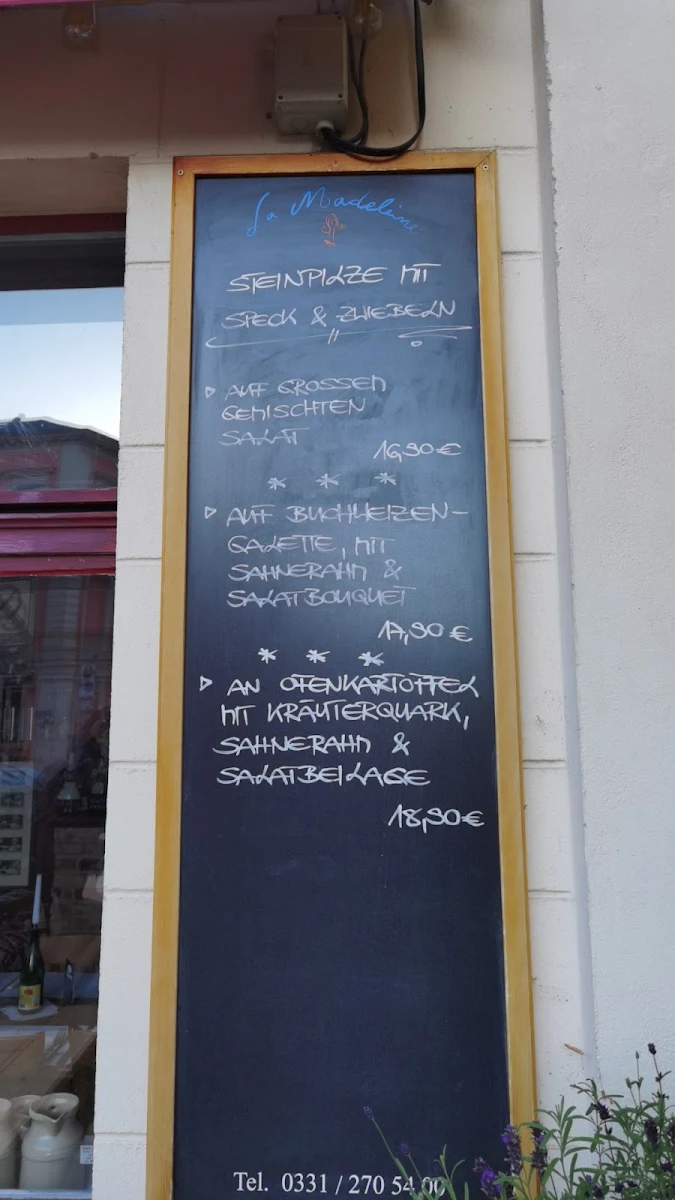 La Madeleine
STEINPILZE MIT
SPECK & ZWIEBELN
▷ AUF GROSSEM
GEMISCHTEN
SALAT
16,90€
* * *
▷ AUF BUCHWEIZEN-
GALETTE, MIT
SAHNERAHM &
SALATBOUQUET
17,90€
* * *
▷ AN OFENKARTOFFEL
MIT KRÄUTERQUARK,
SAHNERAHM &
SALATBEILAGE
18,90€
Tel. 0331 / 270 54 00